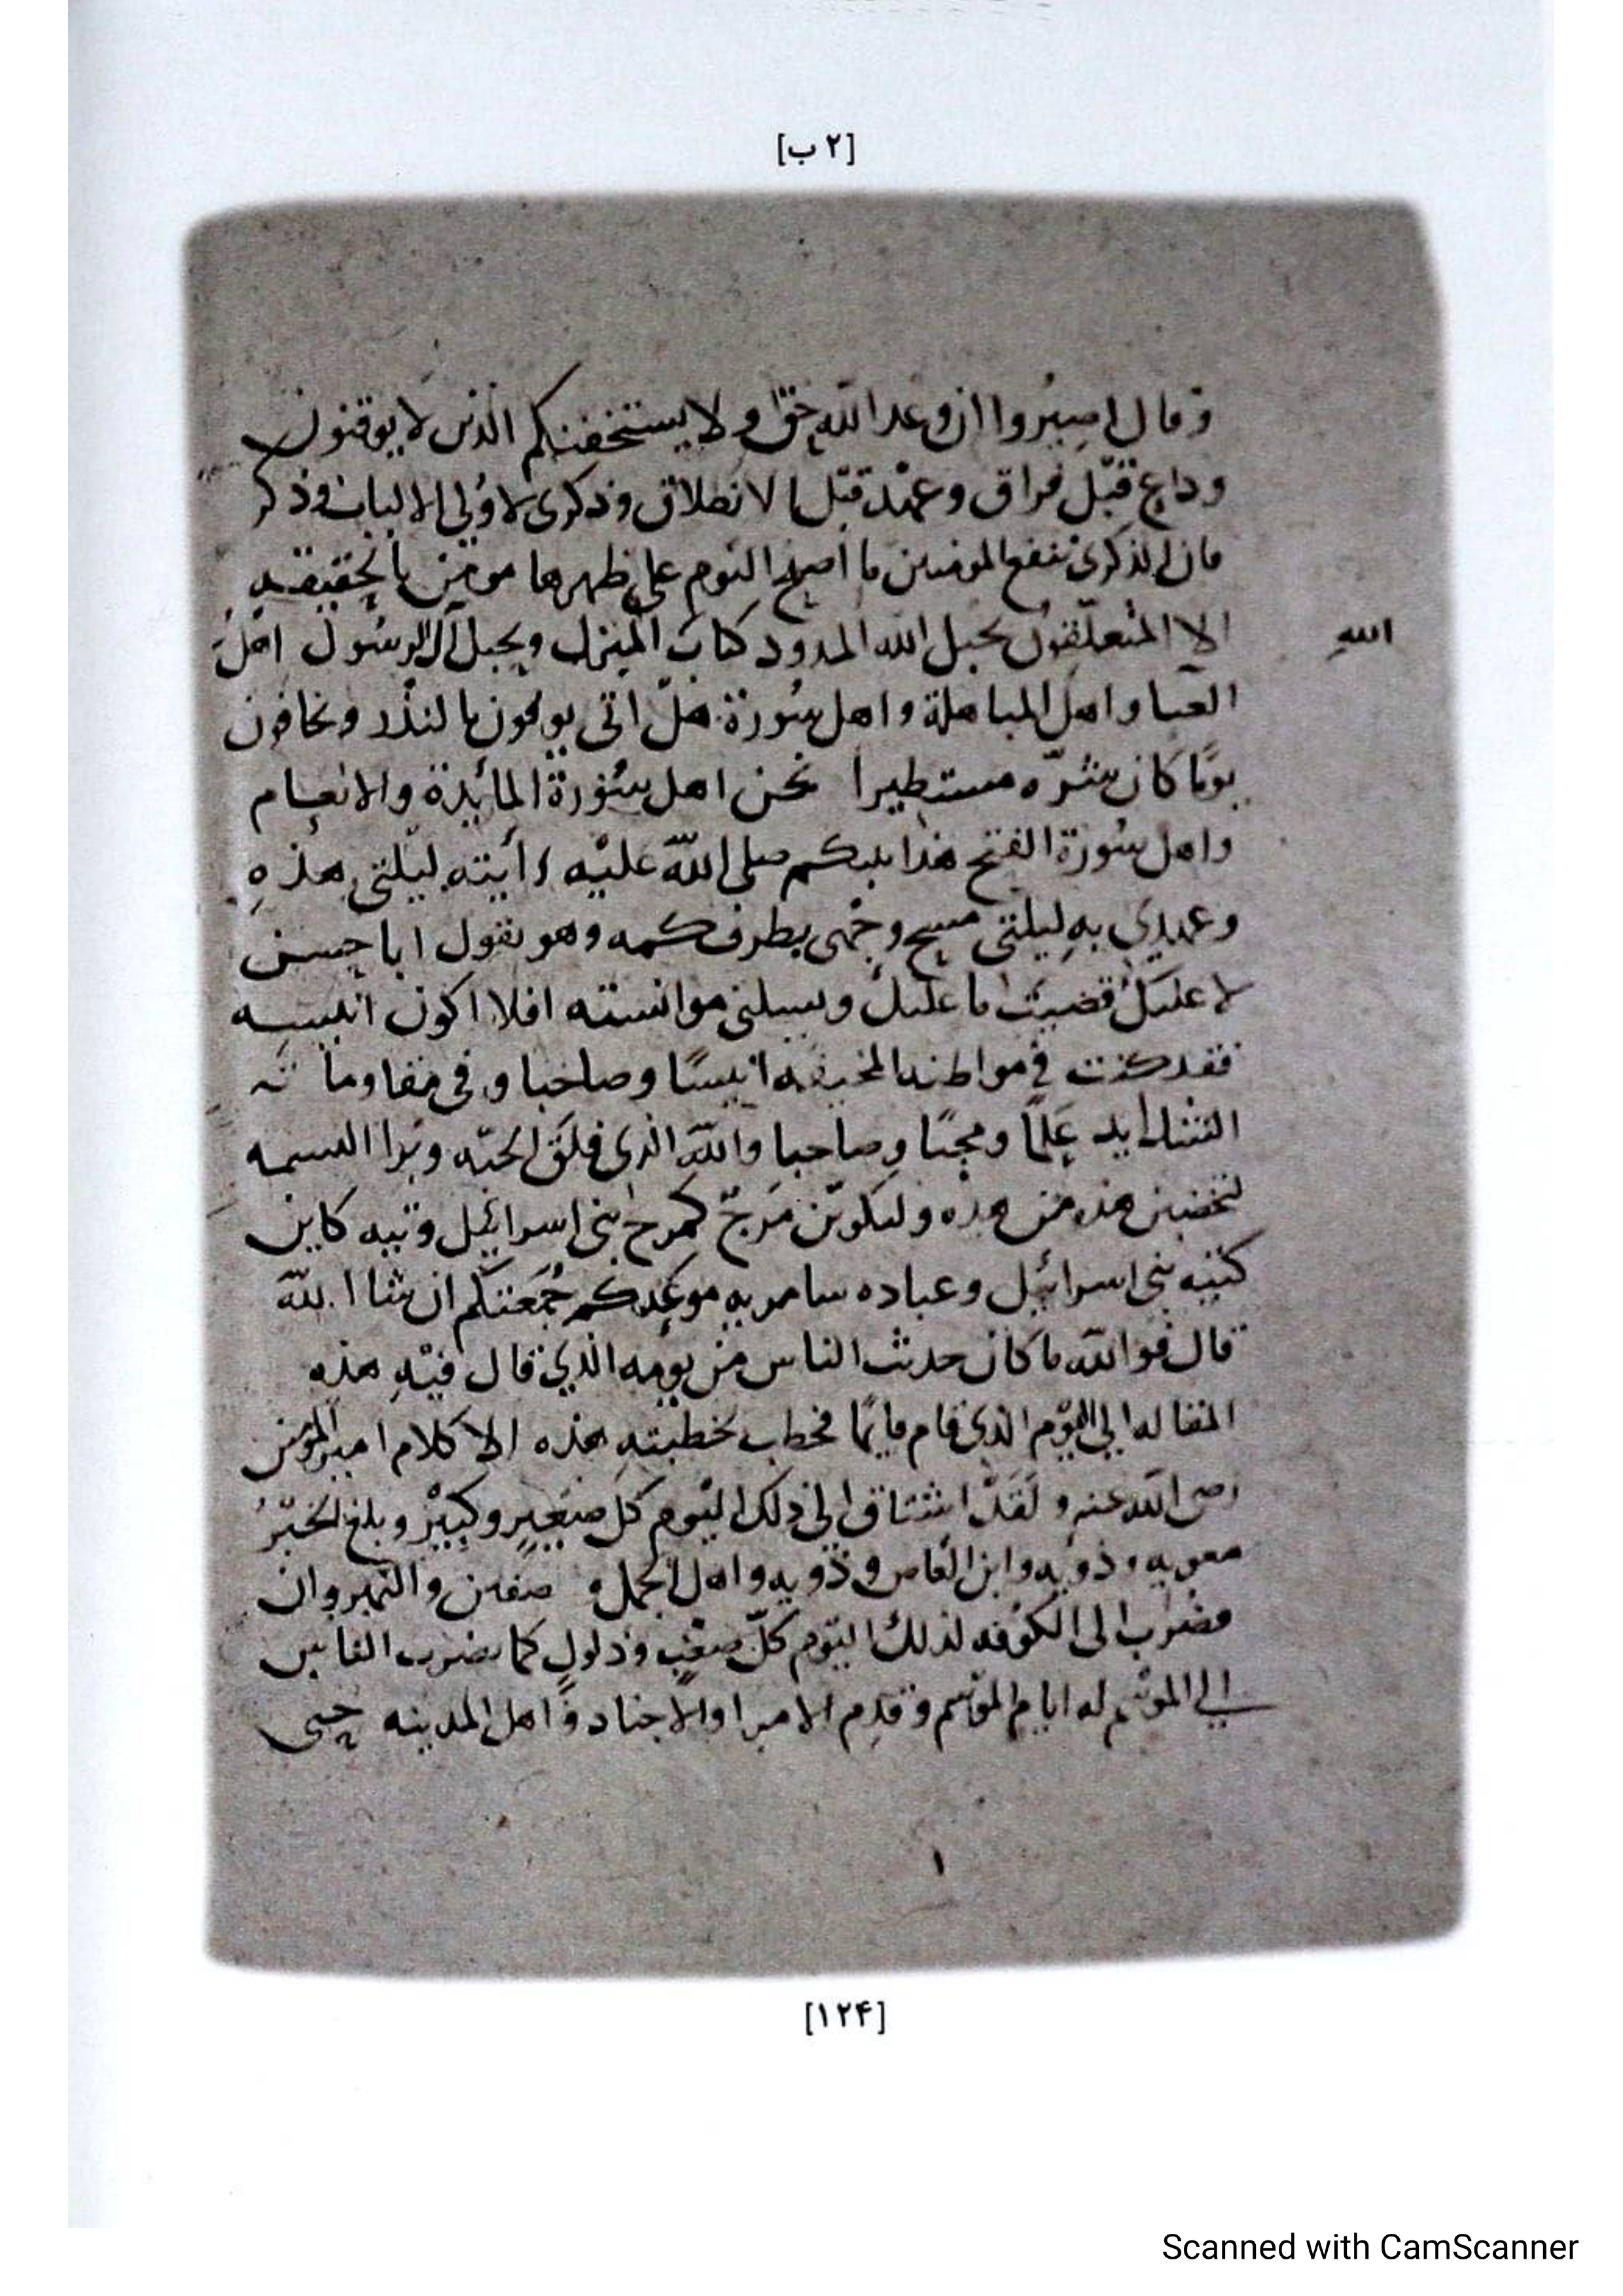 [٢ ب]
وقال اصبروا ان وعد الله حق ولا يستخفنكم الذين لا يوقنون
وداع قبل فراق وعهد قبل الانطلاق وذكرى لاولى الالباب وذكر
فان الذكرى تنفع المومنين ما اصبح اليوم على ظهرها مومن بالحقيقه
الا المتعلقون بحبل الله الممدود كتاب المنزل وبحبل آل الرسول اهل
الله
العبا واهل المباهلة واهل سورة هل اتى يوفون بالنذر ويخافون
يوما كان شره مستطيرا نحن اهل سورة المائدة والانعام
واهل سورة الفتح هذا نبيكم صلى الله عليه رأيته ليلتى هذه
وعهدي به ليلتى مسح وجهى بطرف كمه وهو يقول ابا حسن
لا عليك قضيت ما عليك ويسلنى موانسته افلا اكون انيسه
فقد كنت في مواطنه المخيفه انيسا وصاحبا وفى مقاوماته
الشدايد علما ومجنا وصاحبا والله الذى فلق الحبه وبرا النسمه
لتخضبن هذه من هذه وليكونن مرج كمرج بنى اسرائيل وتيه كاين
كتيه بنى اسرائيل وعباده سامريه موعدكم جمعتكم ان شا الله
قال فوالله ما كان حديث الناس من يومه الذي قال فيه هذه
المقاله الى اليوم الذى قام قايما فخطب بخطبته هذه الا كلام امير المومنين
رضى الله عنه ولقد اشتاق الى ذلك اليوم كل صغير وكبير وبلغ الخبر
معويه وذويه وابن العاص وذويه واهل الجمل و صفين والنهروان
فضرب الى الكوفه لذلك اليوم كل صعب وذلول كما يضرب الناس
الي الموسم له ايام الموسم وقدم الامرا والاجناد واهل المدينه حتى
١
[١٢۴]
Scanned with CamScanner